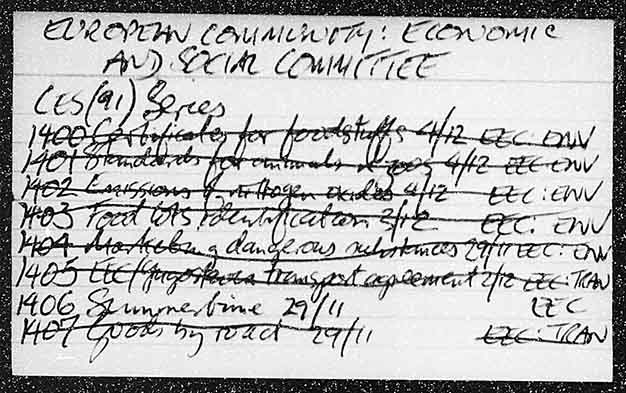 EUROPEAN COMMUNITY: ECONOMIC
AND SOCIAL COMMITTEE
CES(91) Series
1400 Certificates for foodstuffs 4/12 EEC: ENV
1401 Standards for animals in zoos 4/12 EEC: ENV
1402 Emissions of nitrogen oxides 4/12 EEC: ENV
1403 Food lots identification 3/12 EEC: ENV
1404 Marketing dangerous substances 29/11 EEC: ENV
1405 EEC/Yugoslavia transport agreement 2/12 EEC: TRAN
1406 Summertime 29/11 EEC
1407 Goods by road 29/11 EEC: TRAN